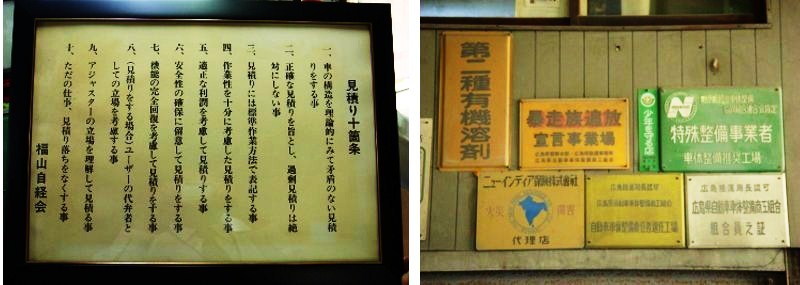 見積り十箇条
一、車の構造を理論的にみて矛盾のない見積
りをする事
二、正確な見積りを旨とし、過剰見積りは絶
対にしない事
三、見積りには標準作業方法で表記する事
四、作業性を十分に考慮した見積りをする事
五、適正な利潤を考慮して見積りする事
六、安全性の確保に留意して見積りをする事
七、機能の完全回復を考慮して見積りをする事
八、（見積りをする場合）ユーザーの代弁者と
しての立場を考慮する事
九、アジャスターの立場を理解して見積る事
十、ただの仕事、見積り落ちをなくする事
福山自経会
第二種有機溶剤
暴走族追放
宣言事業場
少年を守る店
特殊整備事業者
車体整備推奨工場
ニューインディア保険株式会社
火災
傷害
代理店
広島陸運局長認可
広島県自動車車体整備商工組合
広島陸運局長認可
広島県自動車車体整備商工組合
組合員之証